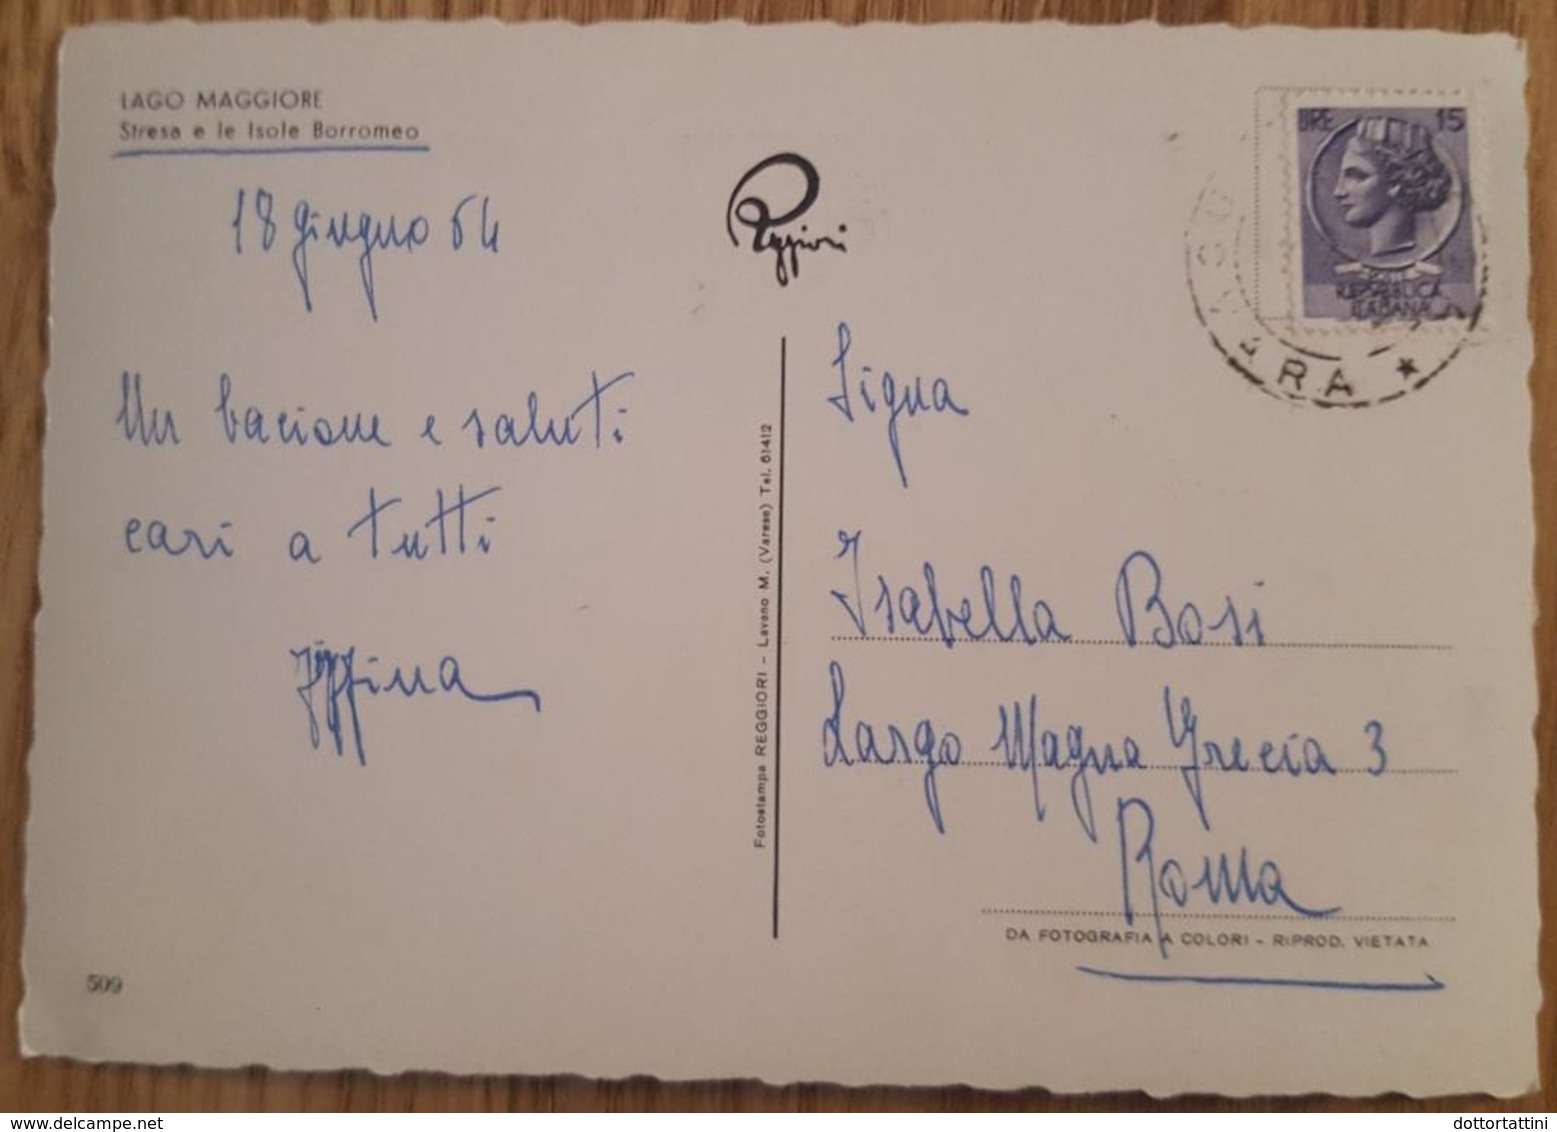 LAGO MAGGIORE
Stresa e le Isole Borromeo
18 giugno 64
Un bacione e saluti
cari a tutti
509
Reggiori
Fotostampa REGGIORI - Laveno M. (Varese) Tel. 61412
LIRE 15
POSTE
REPUBBLICA
ITALIANA
RA *
Signa
Isabella Bosi
Largo Magna Grecia 3
Roma
DA FOTOGRAFIA A COLORI - RIPROD. VIETATA
dottortattini